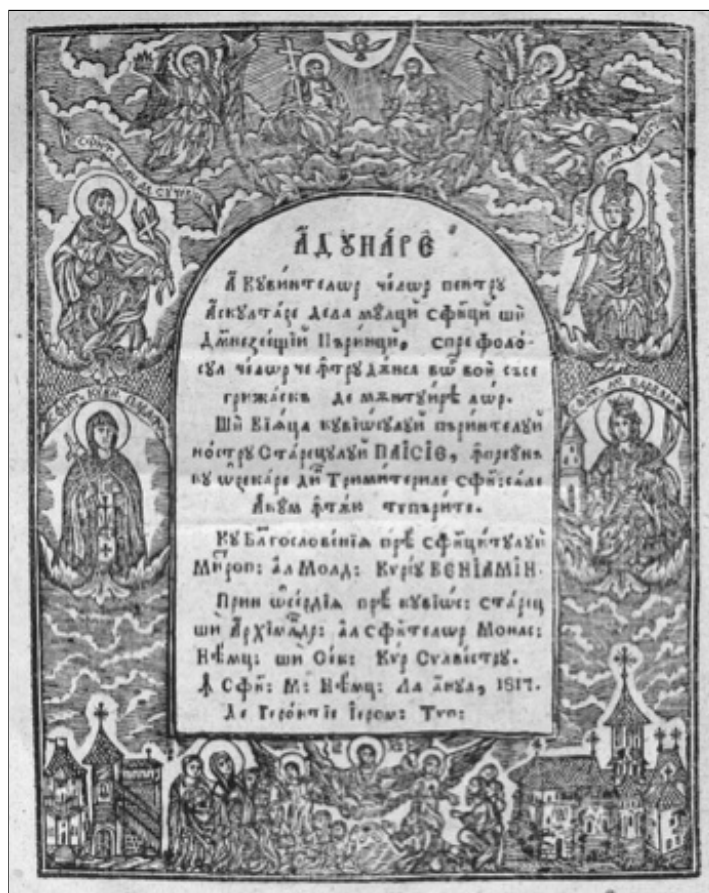 А҆ДꙋНАРЕ
А҆ Кꙋви́нтелѡр че́лѡр пентрꙋ
А҆скꙋлта́ре дела мꙋ́лци сфи́нци ши
Дꙋмнезее́щїи Пъри́нци, спре фоло-
сꙋл че́лѡр че ꙟ҆трꙋ ди́нса вѡ҆ вой съсе
грижа́скъ де мѫнтꙋи́рѣ лѡ́р.
Ши Вїа́ца кꙋвїѡ́сꙋлꙋй пъри́нтелꙋй
но́стрꙋ Ста́рецꙋлꙋй ПАЇСЇЕ, ꙟ҆преꙋнъ
кꙋ ѡ҆рекаре ди Трими́териле сфи҃:сале
А҆кꙋм ꙟ҆тѫй типъри́те.
Кꙋ Бл҃гослове́нїѧ прѣ сфинци́тꙋлꙋй
Ми́троп: ал Молд: Кѵ́рїꙋ ВЕНЇАМЇ́Н.
Прин ѡ҆се́рдїѧ прѣ кꙋвїѡ́с: ста́рец
ши А҆рхїма́ндр: ал сфи́нтелѡр Монас:
Нѣ́мц: ши Секꙋ: Кѵ́р Силве́стрꙋ.
Ꙟ Сфи҃: М: Нѣ́мц: Ла а́нꙋл, 1817.
Де Геро́нтїе І҆ером: Тѵп: